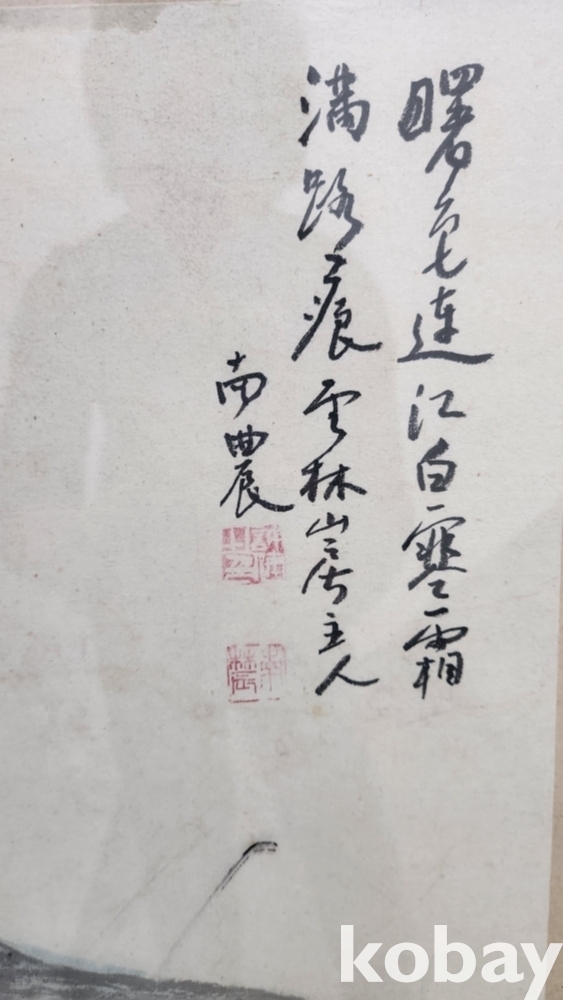 曙色連江白寒霜
滿路痕雲林山房主人
南農
南農
kobay